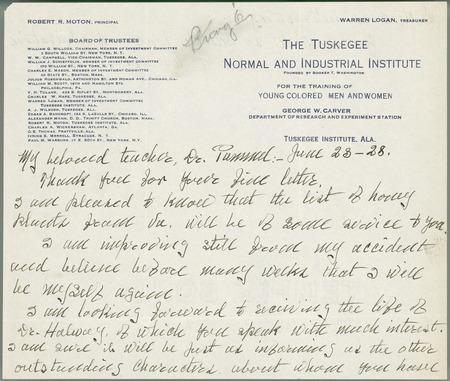 ROBERT R. MOTON, PRINCIPAL
WARREN LOGAN, TREASURER
BOARD OF TRUSTEES
WILLIAM G. WILLCOX, CHAIRMAN, MEMBER OF INVESTMENT COMMITTEE
3 SOUTH WILLIAM ST., NEW YORK, N. Y.
W. W. CAMPBELL, VICE CHAIRMAN, TUSKEGEE, ALA.
WILLIAM J. SCHIEFFELIN, MEMBER OF INVESTMENT COMMITTEE
170 WILLIAM ST., NEW YORK, N. Y.
CHARLES E. MASON, MEMBER OF INVESTMENT COMMITTEE
30 STATE ST., BOSTON, MASS.
JULIUS ROSENWALD, ARTHINGTON ST. AND HOMAN AVE., CHICAGO, ILL.
WILLIAM M. SCOTT, 16TH AND HAMILTON STS.
PHILADELPHIA, PA.
V. H. TULANE, RIPLEY ST., MONTGOMERY, ALA.
CHARLES W. HARE, TUSKEGEE, ALA.
WARREN LOGAN, MEMBER OF INVESTMENT COMMITTEE
TUSKEGEE INSTITUTE, ALA.
A. J. WILBORN, TUSKEGEE, ALA.
EDGAR A. BANCROFT, LASALLE ST., CHICAGO, ILL.
ALEXANDER MANN, D. D., TRINITY CHURCH, BOSTON, MASS.
ROBERT R. MOTON, TUSKEGEE INSTITUTE, ALA.
CHARLES A. WICKERSHAM, ATLANTA, GA.
G. E. THOMAS, PRATTVILLE, ALA.
MERRELL, SYRACUSE, N. Y.
PAUL M. WARBURG, 17 E. 80TH ST., NEW YORK, N. Y.
THE TUSKEGEE
NORMAL AND INDUSTRIAL INSTITUTE
FOUNDED BY BOOKER T. WASHINGTON
FOR THE TRAINING OF
YOUNG COLORED MEN AND WOMEN
GEORGE W. CARVER
DEPARTMENT OF RESEARCH AND EXPERIMENT STATION
TUSKEGEE INSTITUTE, ALA.
My beloved teacher, Dr. Pammel:- June 23-28.
Thank you for your fine letter.
I am pleased to know that the list of honey
plants from Va. will be of some service to you.
I am improving still from my accident
and believe before many weeks that I will
be myself again.
I am looking forward to receiving the life of
Dr. Halway, of which you speak with much interest.
I am sure it will be just as informing as the other
outstanding characters about whom you have